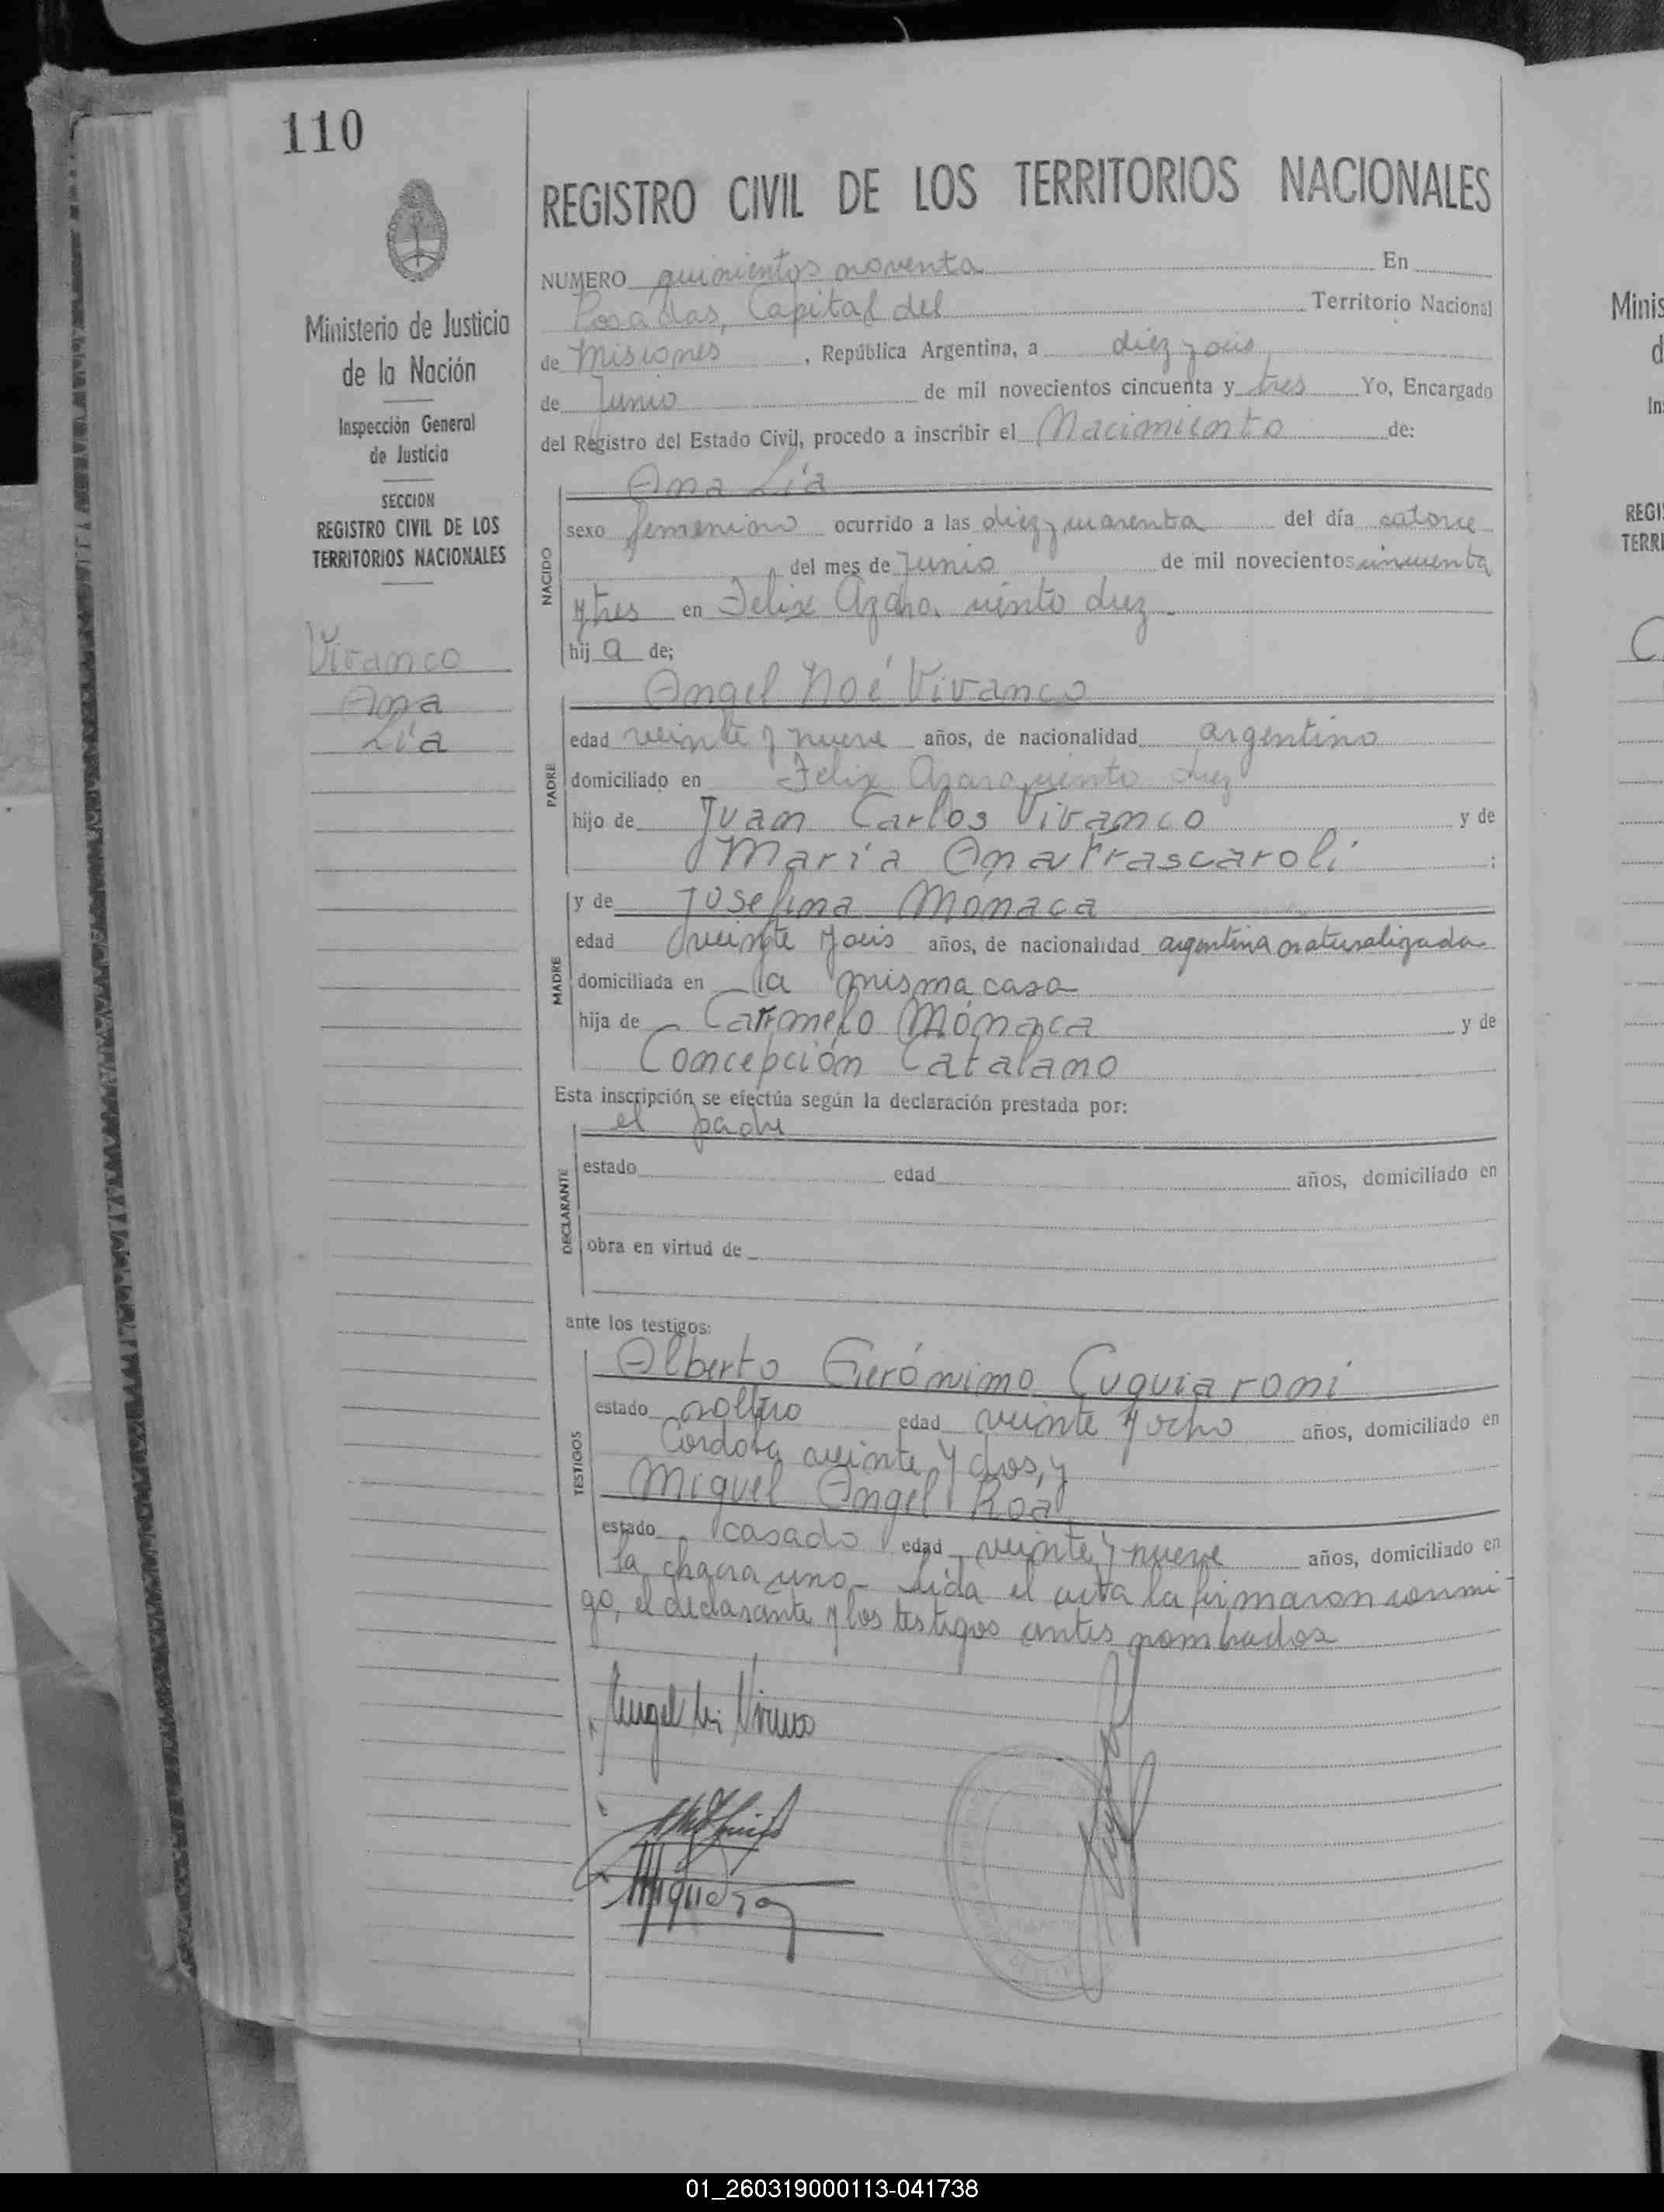 110
REGISTRO CIVIL DE LOS TERRITORIOS NACIONALES
Ministerio de Justicia
de la Nación
Inspección General
de Justicia
SECCION
REGISTRO CIVIL DE LOS
TERRITORIOS NACIONALES
Vivanco
Ana
Lía
NUMERO quinientos noventa En
Posadas, Capital del Territorio Nacional
de Misiones, República Argentina, a diez y seis
de Junio de mil novecientos cincuenta y tres Yo, Encargado
del Registro del Estado Civil, procedo a inscribir el Nacimiento de:
NACIDO
Ana Lía
sexo femenino ocurrido a las diez y cuarenta del día catorce
del mes de Junio de mil novecientos cincuenta
y tres en Felix Azara ciento diez
hij a de;
PADRE
Angel Noé Vivanco
edad veinte y nueve años, de nacionalidad argentino
domiciliado en Felix Azara ciento diez
hijo de Juan Carlos Vivanco y de
María Ana Frascaroli ;
MADRE
y de Josefina Monaca
edad veinte y seis años, de nacionalidad argentina naturalizada
domiciliada en la misma casa
hija de Carmelo Mónaca y de
Concepción Catalano
Esta inscripción se efectúa según la declaración prestada por:
DECLARANTE
el padre
estado edad años, domiciliado en
obra en virtud de
ante los testigos:
TESTIGOS
Alberto Gerónimo Cuquiaroni
estado soltero edad veinte y ocho años, domiciliado en
Cordoba veinte y dos, y
Miguel Angel Roa
estado casado edad veinte y nueve años, domiciliado en
la chacra uno. Leida el acta la firmaron conmi
go, el declarante y los testigos antes nombrados
Minis
d
In
REGI
TERRI
C
01_260319000113-041738